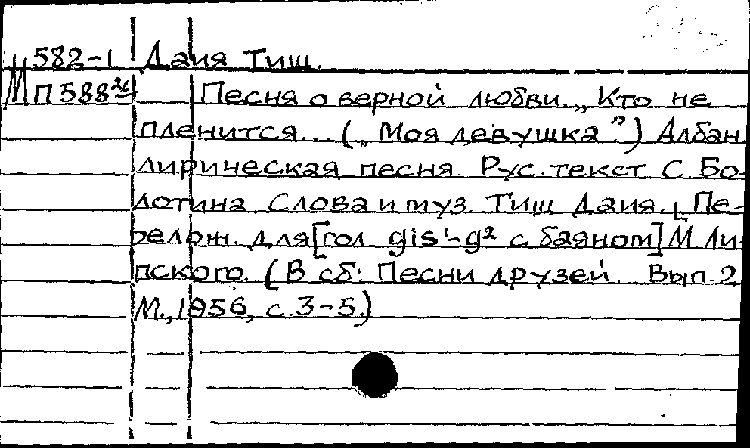 582-1 Даия Тиш.
М П 588²⁴ Песня о верной любви. „Кто не
пленится... („Моя девушка") Албан
лирическая песня. Рус. текст С. Бо-
лотина. Слова и муз. Тиш Даия. Пе-
релож. для [гол. gis¹-g² с баяном] М Ли-
пского. (В сб: Песни друзей. Вып 2
М., 1956, с. 3-5.)